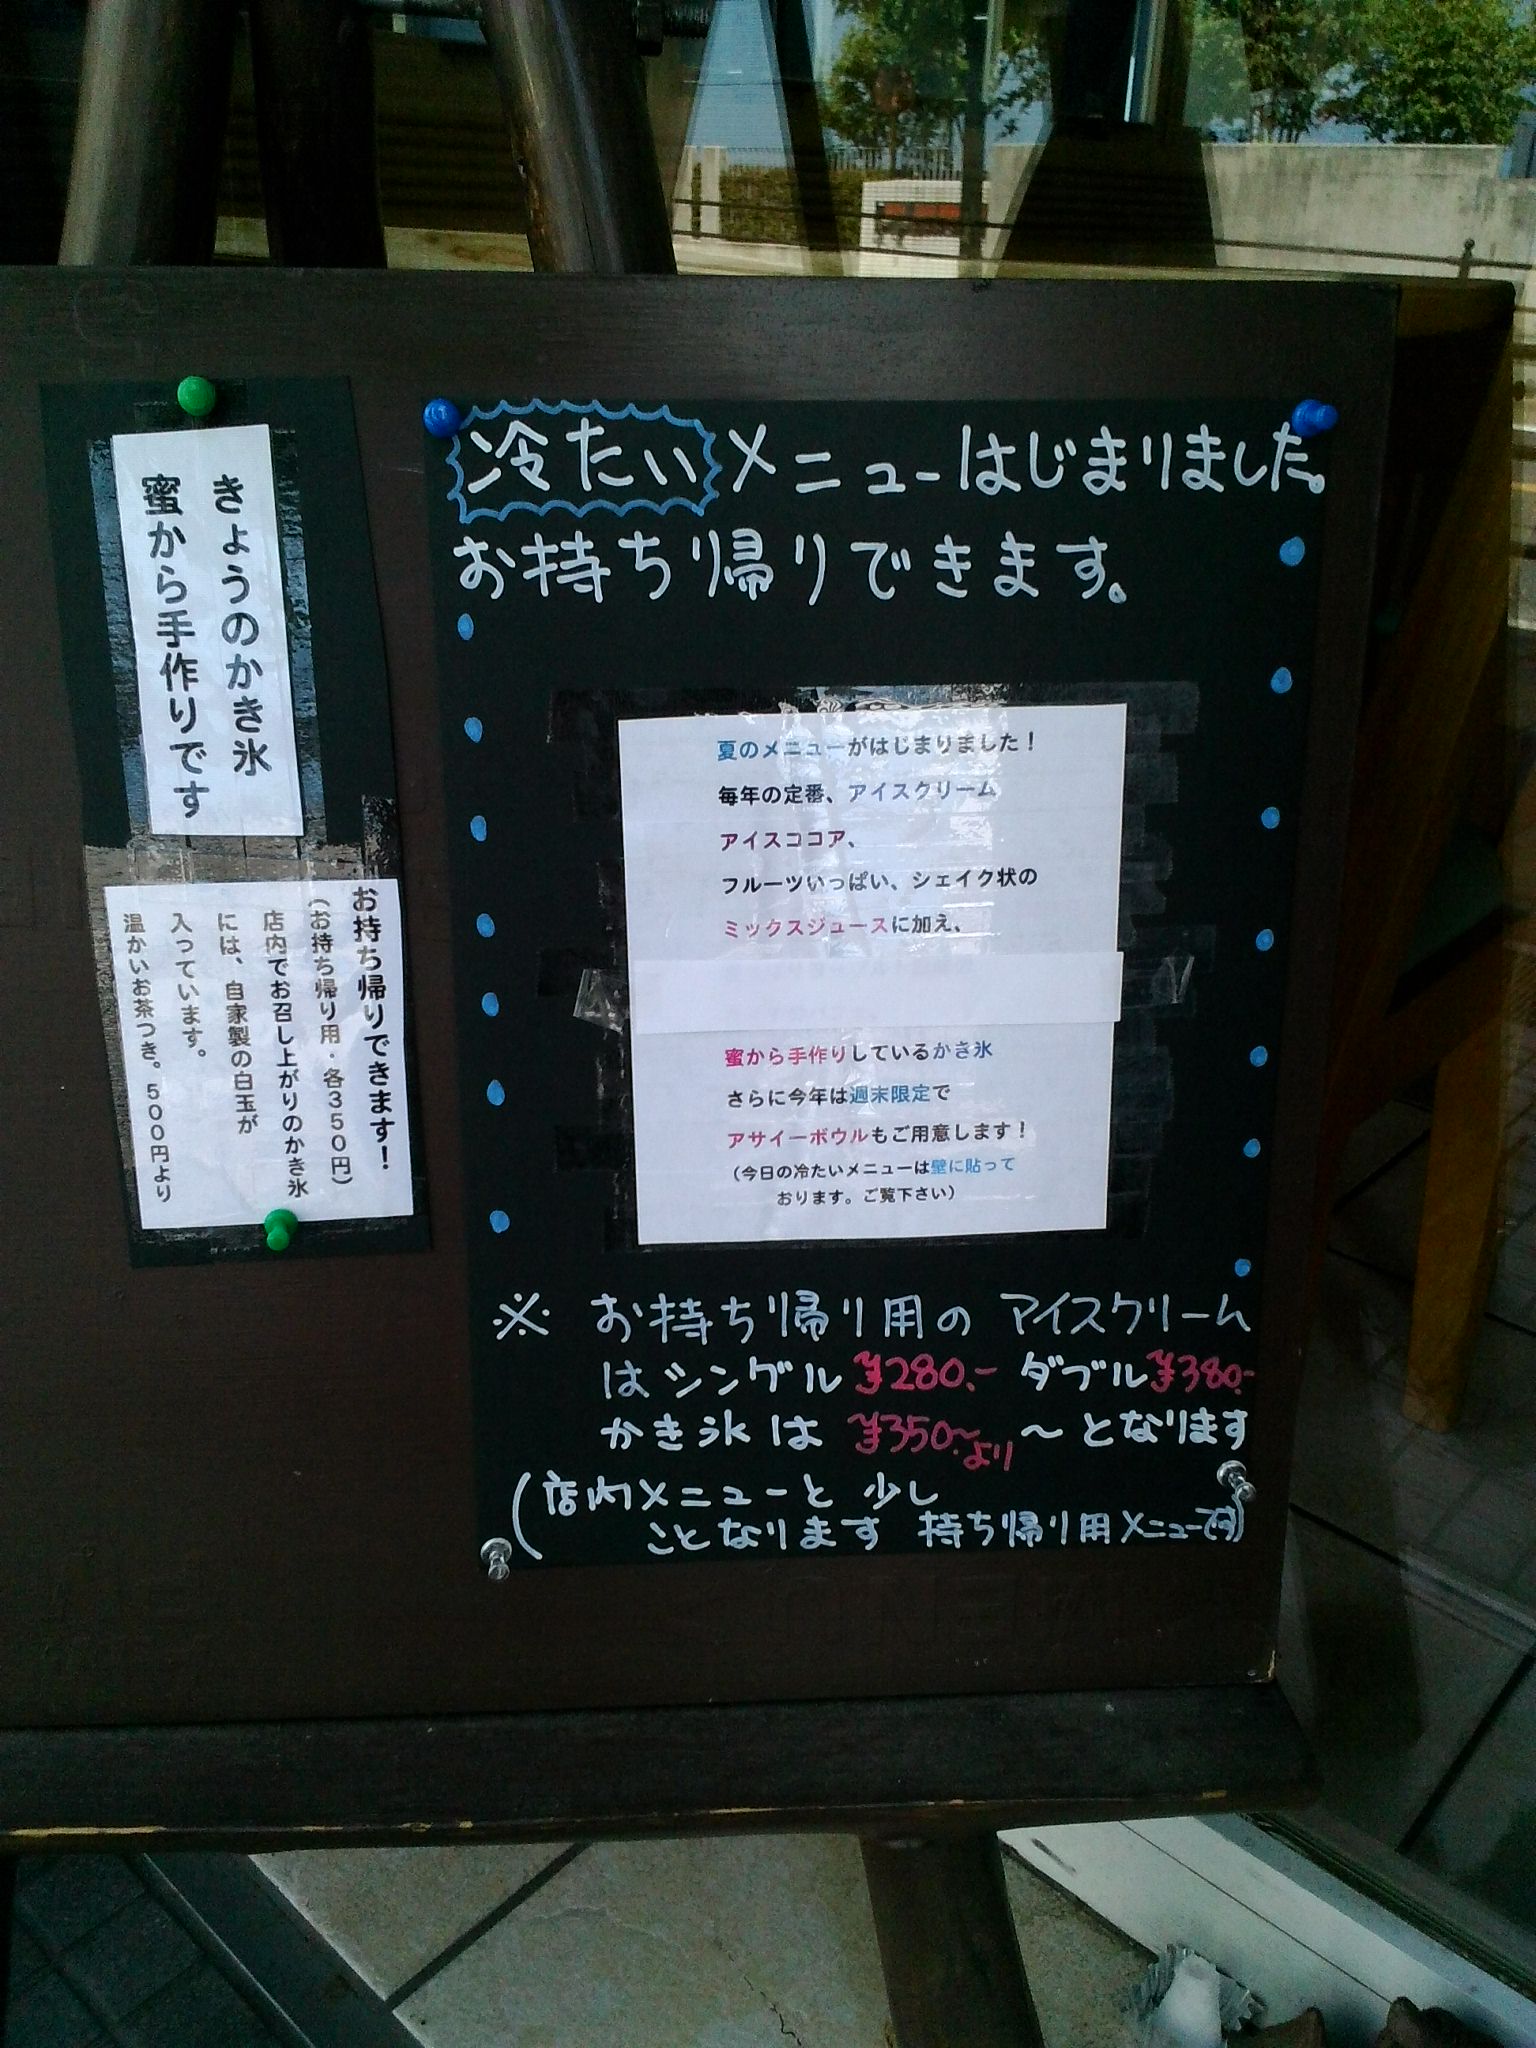 冷たいメニューはじまりました。
お持ち帰りできます。
夏のメニューがはじまりました！
毎年の定番、アイスクリーム
アイスココア、
フルーツいっぱい、シェイク状の
ミックスジュースに加え、
蜜から手作りしているかき氷
さらに今年は週末限定で
アサイーボウルもご用意します！
（今日の冷たいメニューは壁に貼って
おります。ご覧下さい）
※ お持ち帰り用の アイスクリーム
はシングル ¥280.- ダブル ¥380.-
かき氷は ¥350~より ～となります
(店内メニューと 少し
ことなります 持ち帰り用メニューです)
きょうのかき氷
蜜から手作りです
お持ち帰りできます！
（お持ち帰り用・各３５０円）
店内でお召し上がりのかき氷
には、自家製の白玉が
入っています。
温かいお茶つき。５００円より